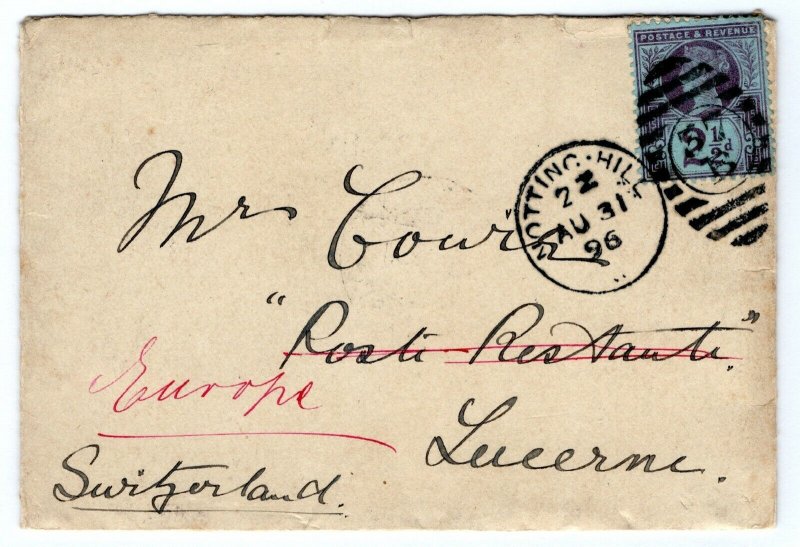 POSTAGE & REVENUE
2½d
NOTTING·HILL
2
AU 31
96
Mrs
"Poste Restante"
Europe
Lucerne.
Switzerland.